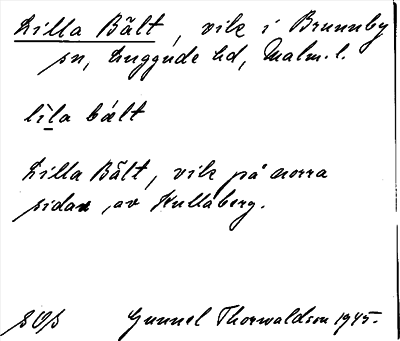 Lilla Bält, vik i Brunnby
sn, Luggude hd, Malm. l.
lìla bælt
Lilla Bält, vik på norra
sidan av Kullaberg.
Gunnel Thorwaldson 1945.